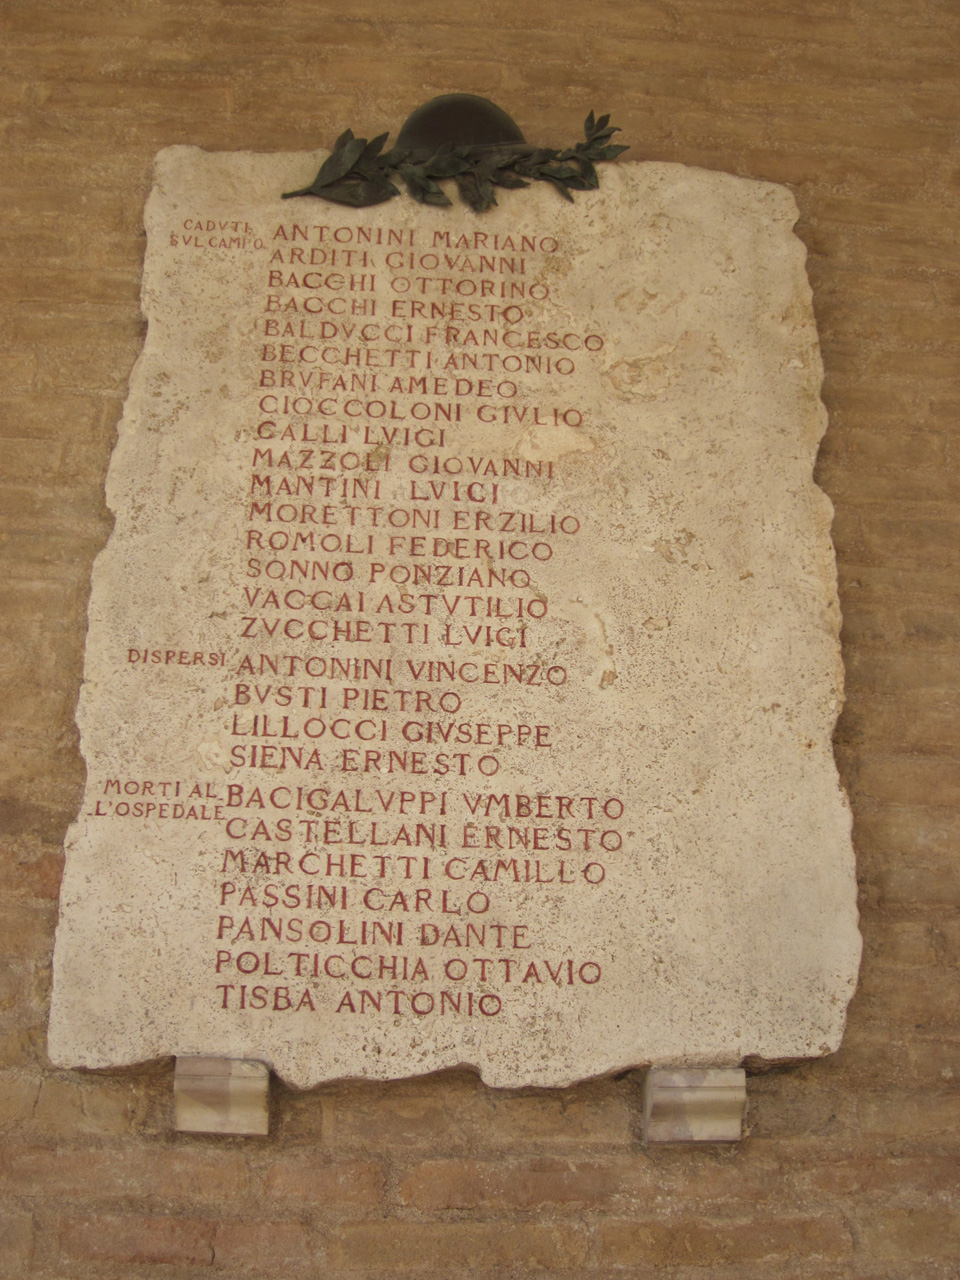 CADVTI ANTONINI MARIANO
SVL CAMPO ARDITI GIOVANNI
BACCHI OTTORINO
BACCHI ERNESTO
BALDVCCI FRANCESCO
BECCHETTI ANTONIO
BRVFANI AMEDEO
CIOCCOLONI GIVLIO
GALLI LVIGI
MAZZOLI GIOVANNI
MANTINI LVIGI
MORETTONI ERZILIO
ROMOLI FEDERICO
SONNO PONZIANO
VACCAI ASTVTILIO
ZVCCHETTI LVIGI
DISPERSI ANTONINI VINCENZO
BVSTI PIETRO
LILLOCCI GIVSEPPE
SIENA ERNESTO
MORTI AL BACIGALVPPI VMBERTO
L'OSPEDALE CASTELLANI ERNESTO
MARCHETTI CAMILLO
PASSINI CARLO
PANSOLINI DANTE
POLTICCHIA OTTAVIO
TISBA ANTONIO